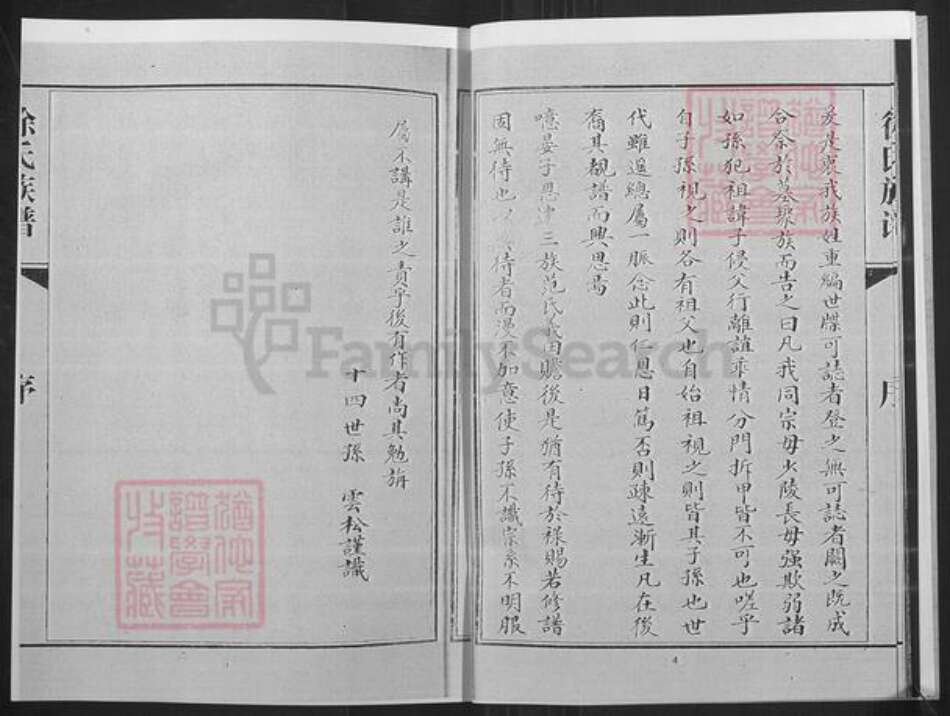 徐氏族譜
序
爰是裒我族姓重編世牒可誌者登之無可誌者闕之既成
合祭於墓聚族而告之曰凡我同宗毋少陵長毋强欺弱諸
如孫犯祖諱子侵父行離誼乖情分門拆甲皆不可也嗟乎
自子孫視之則各有祖父也自始祖視之則皆其子孫也世
代雖遥總屬一脈念此則仁恩日篤否則疎遠漸生凡在後
裔其覩譜而興思焉
噫晏子恩 三族范氏義田贍後是猶有待於祿賜若修譜
固無待也以無待者而漫不加意使子孫不識宗系不明服
屬不講是誰之責乎後有作者尚其勉旃
十四世孫 雲松謹識
徐氏族譜
序
4
FamilySearch
猶他家譜學會收藏
猶他家譜學會收藏